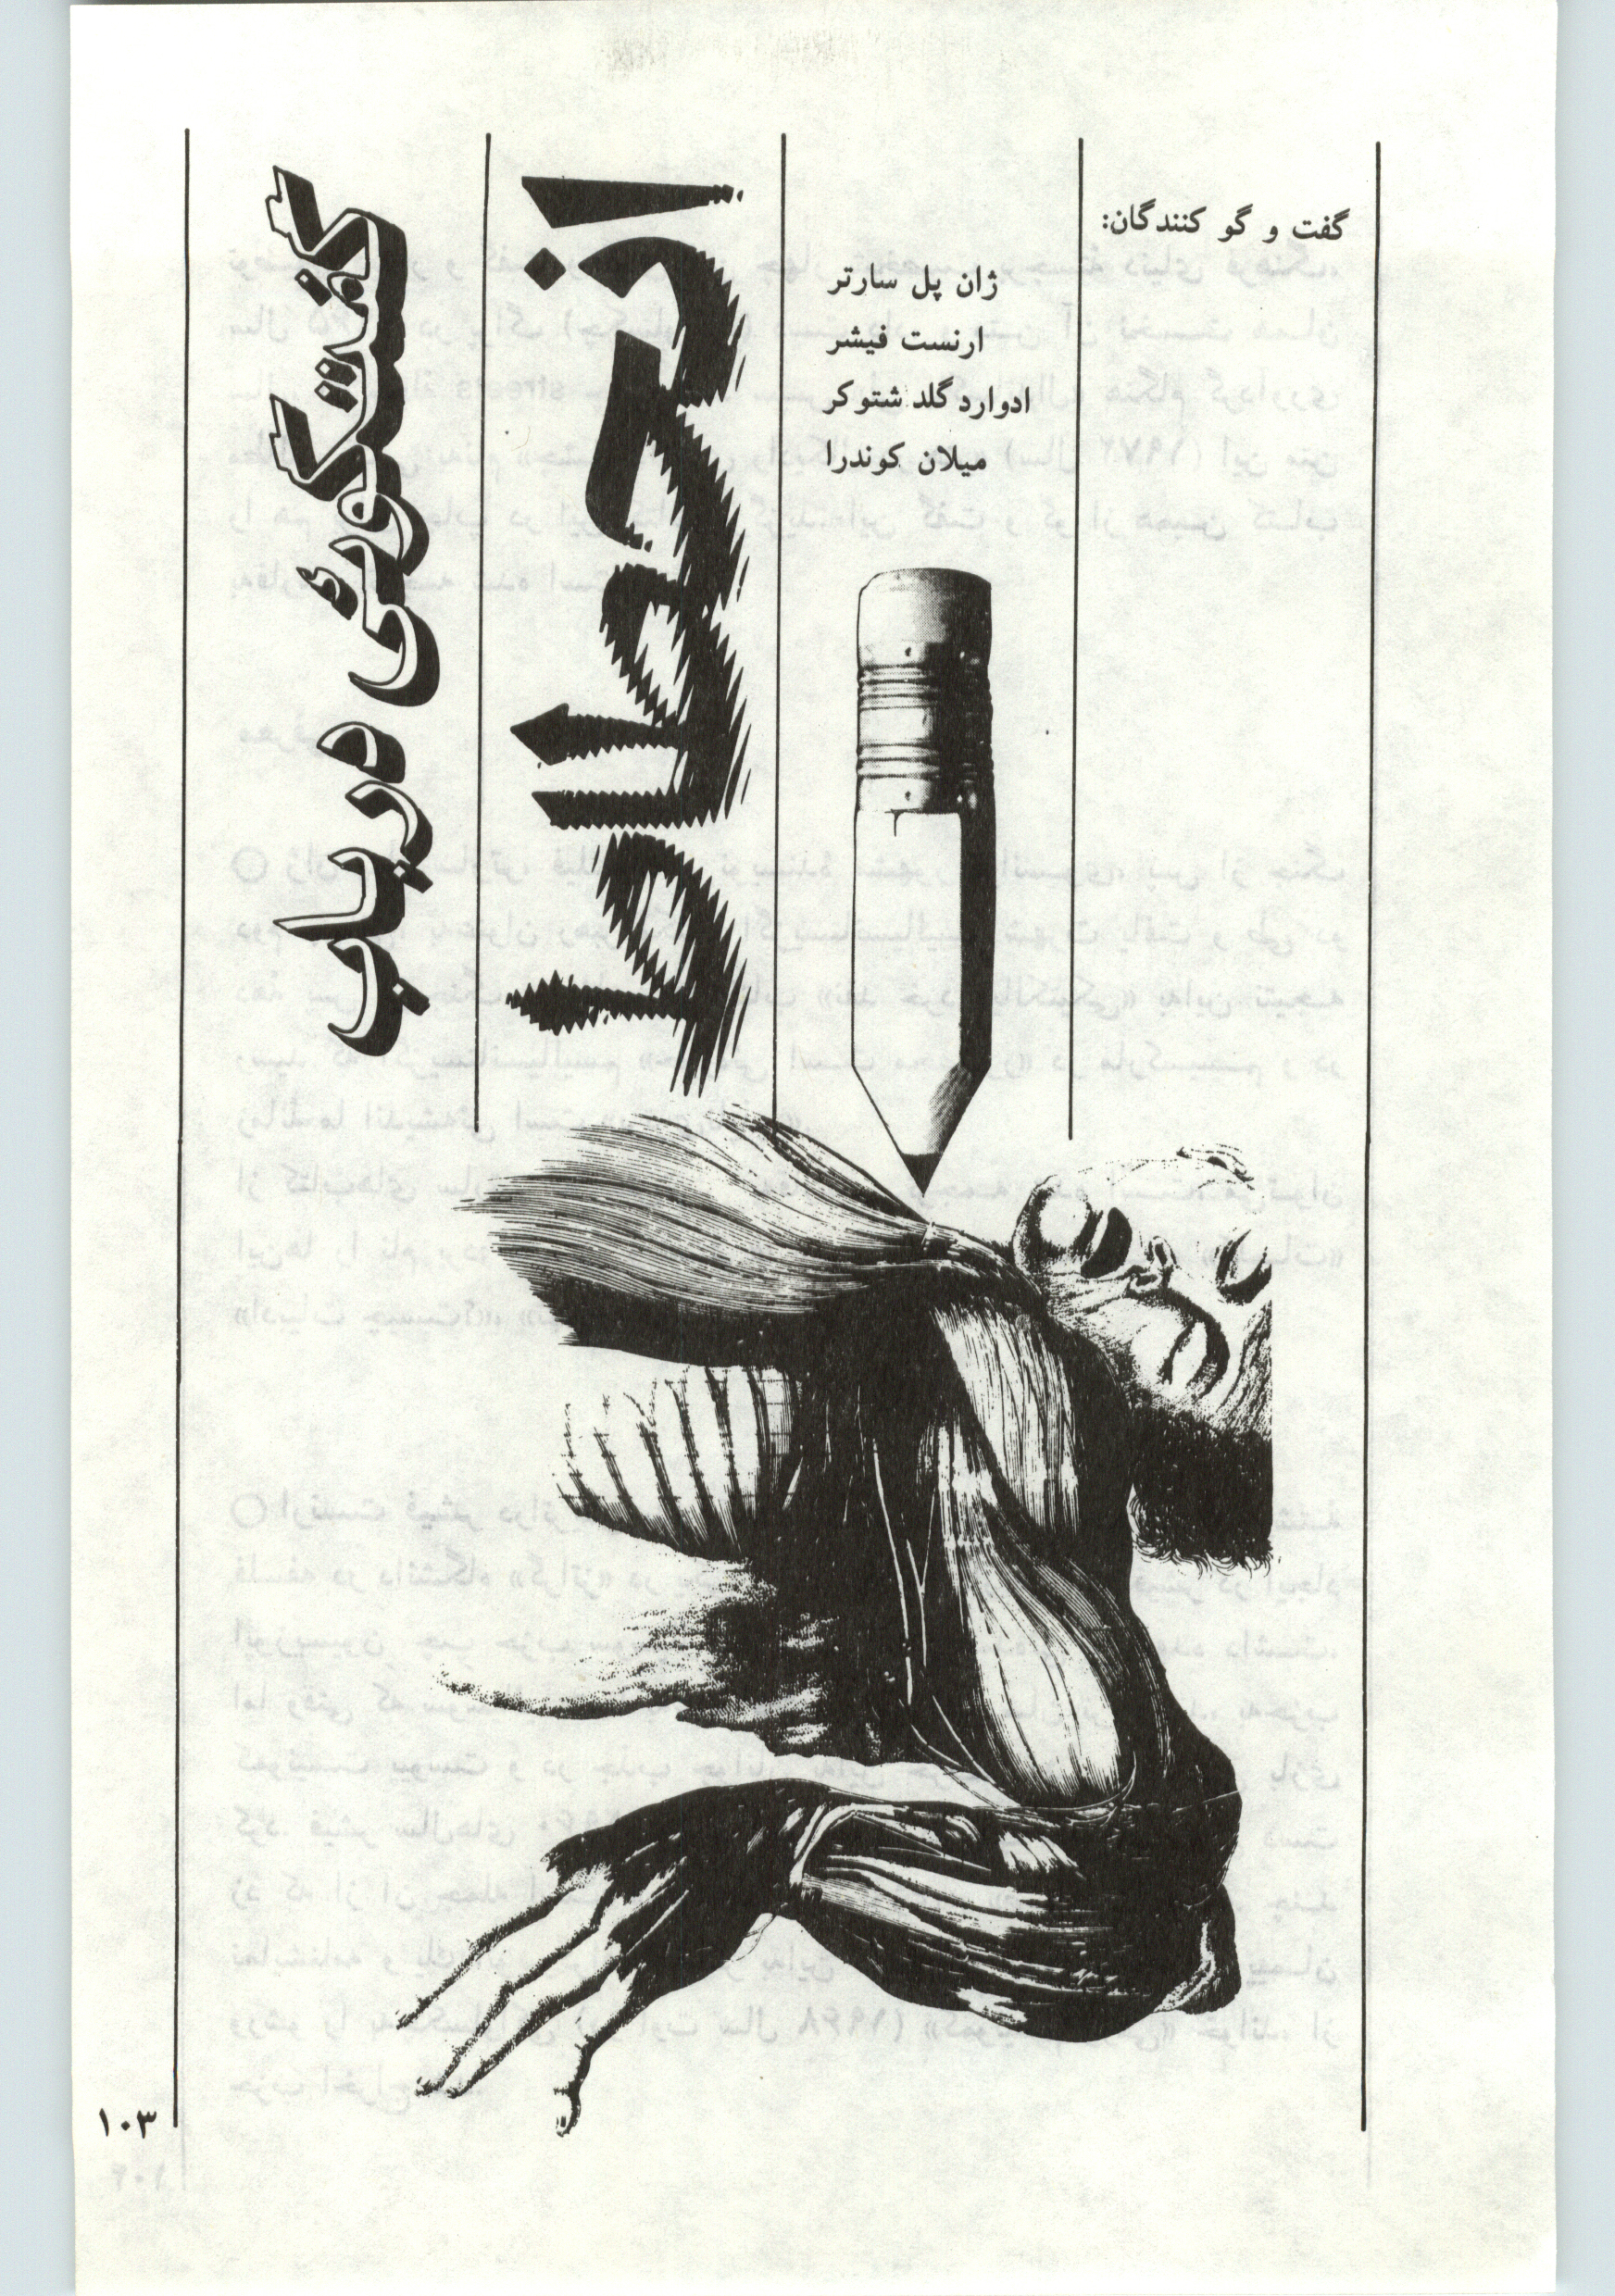 گفتگوئی در باب
انحطاط
گفت و گو کنندگان:
ژان پل سارتر
ارنست فیشر
ادوارد گلد شتوکر
میلان کوندرا
۱۰۳